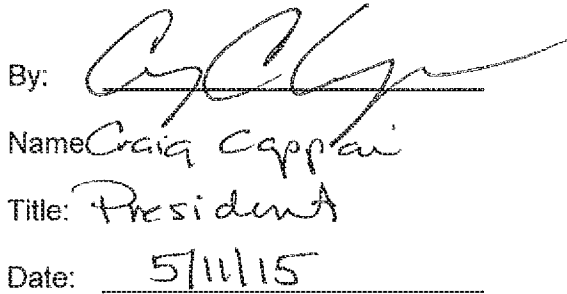 By:
Name Craig Cappai
Title: President
Date: 5/11/15